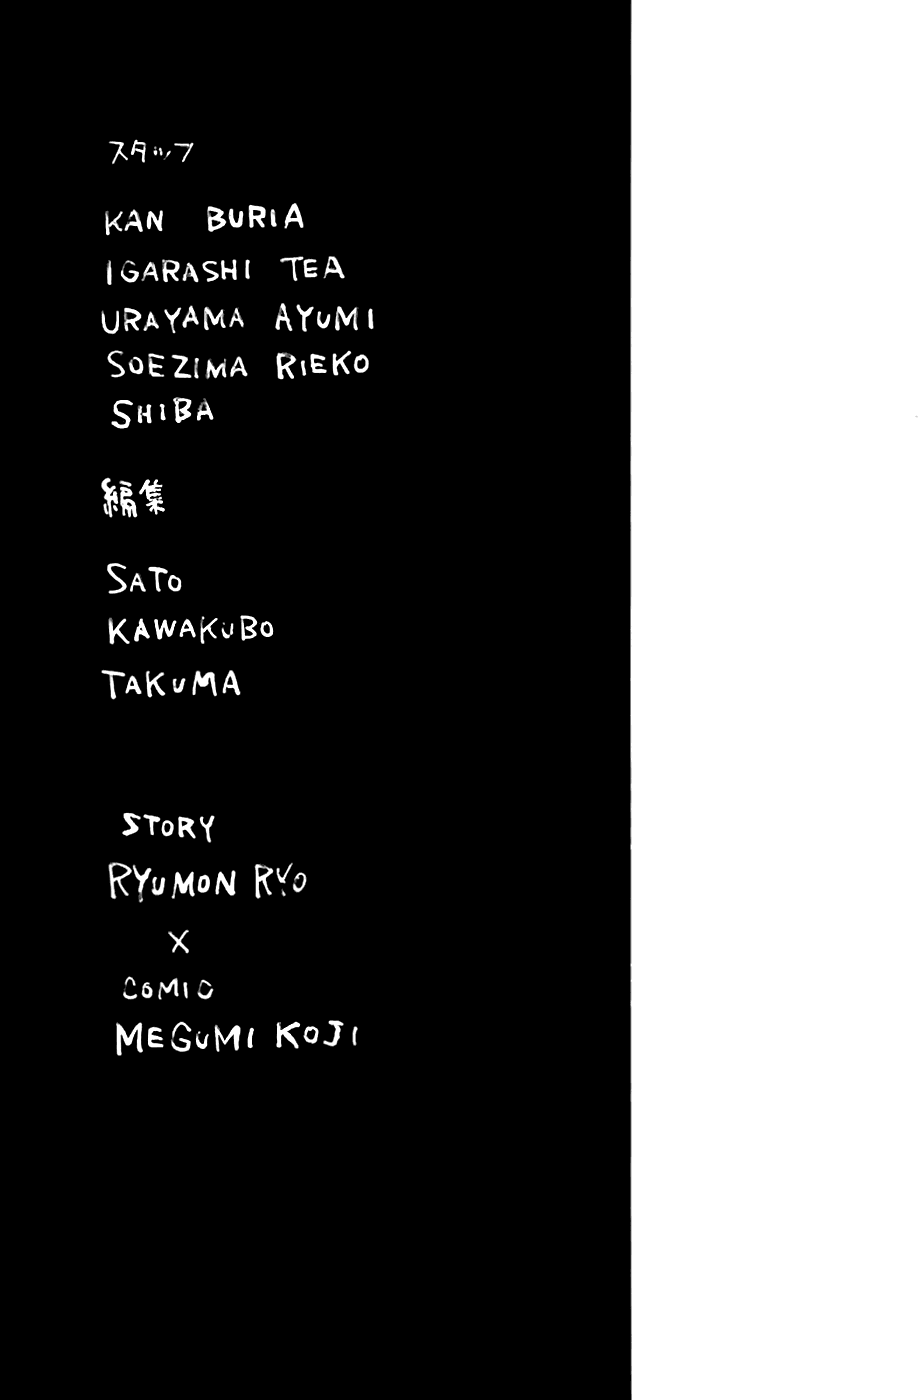 スタッフ
KAN BURIA
IGARASHI TEA
URAYAMA AYUMI
SOEZIMA RIEKO
SHIBA
編集
SATO
KAWAKUBO
TAKUMA
STORY
RYUMON RYO
X
COMIC
MEGUMI KOJI